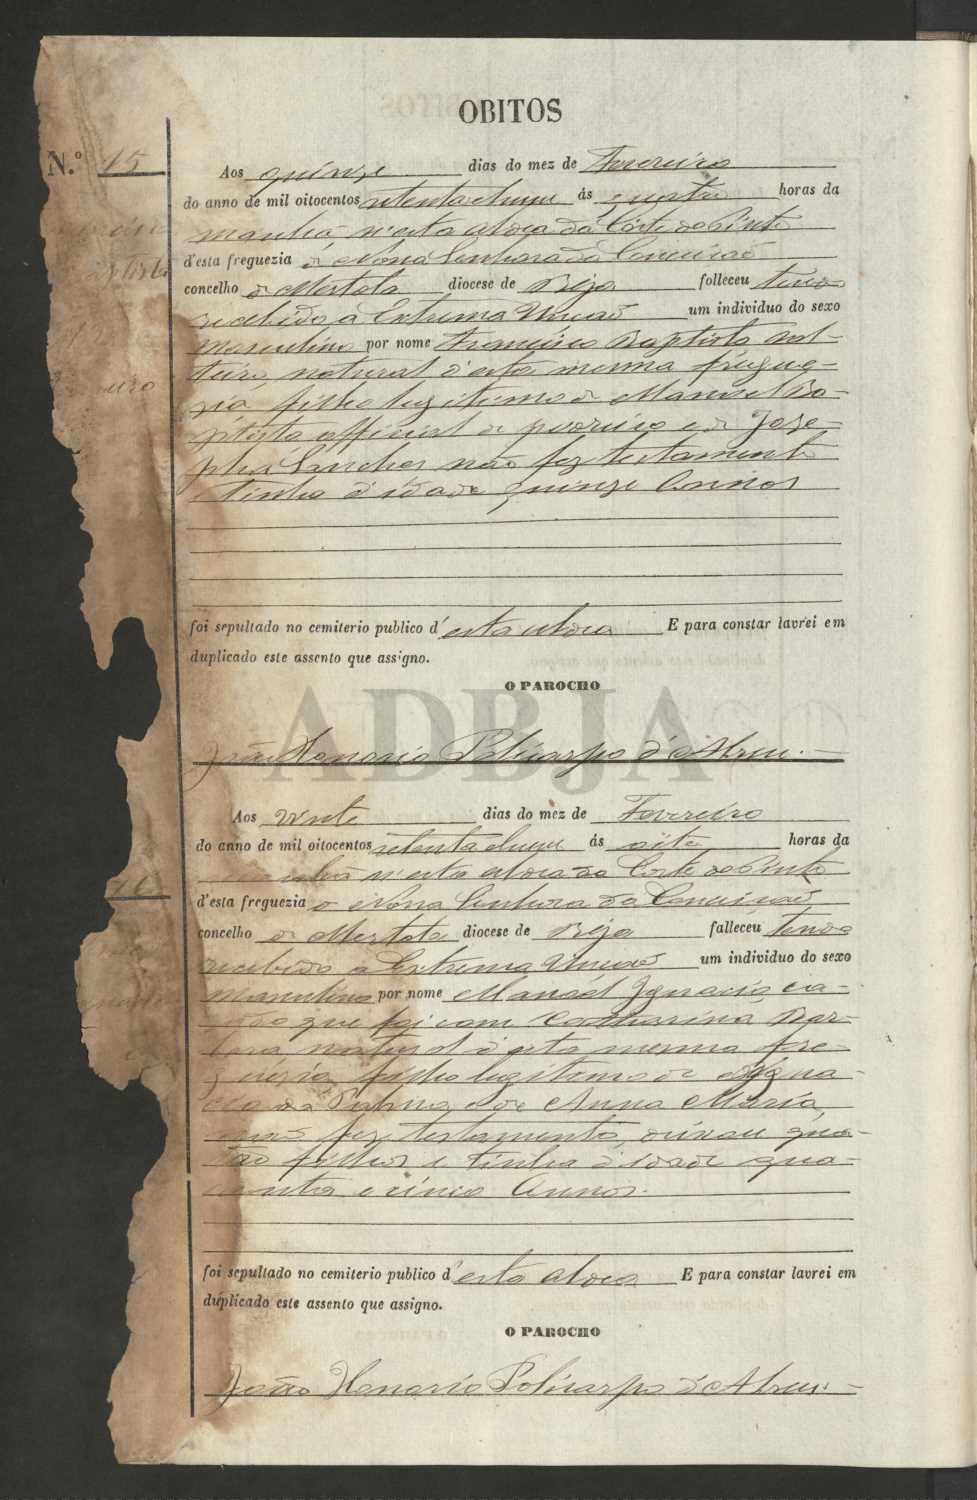 OBITOS
N.º 15
Aos quinze dias do mez de Fevereiro
do anno de mil oitocentos setenta e hum ás quatro horas da
manhã n'esta aldea da Côrte do Pinto
d'esta freguezia de Nossa Senhora da Conceição
concelho de Mertola diocese de Beja folleceu tendo
recebido a Extrema Unção um individuo do sexo
masculino por nome Francisco Baptista sol-
teiro, natural d'esta mesma fregue-
zia, filho legitimo de Manoel Ba-
ptista official de pedreiro e de Joze-
pha Sanches não fez testamento
tinha d'idade quinze Annos
foi sepultado no cemiterio publico d'esta aldea E para constar lavrei em
duplicado este assento que assigno.
O PAROCHO
João Honorio Policarpo d'Abreu.
ADBJA
Aos vinte dias do mez de Fevereiro
do anno de mil oitocentos setenta e hum ás oito horas da
manhã n'esta aldea da Corte do Pinto
d'esta freguezia de Nossa Senhora da Conceição
concelho de Mertola diocese de Beja falleceu tendo
recebido a Extrema Unção um individuo do sexo
masculino por nome Manoel Ignacio ca-
sado que foi com Catharina Bar-
bara, natural d'esta mesma fre-
guezia, filho legitimo de Igna-
cio da Palma e de Anna Maria,
não fez testamento, deixou qua-
tro filhos e tinha d'idade qua-
renta e cinco Annos.
foi sepultado no cemiterio publico d'esta aldea E para constar lavrei em
duplicado este assento que assigno.
O PAROCHO
João Honorio Policarpo d'Abreu.